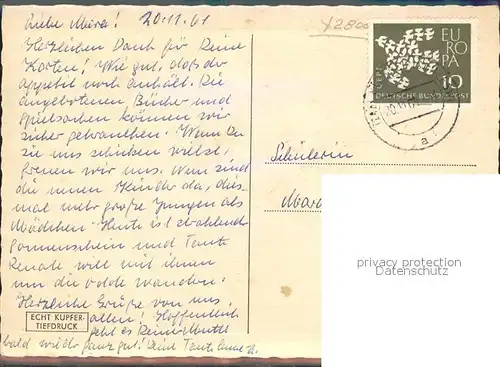 Liebe Mara! 20.11.61
Herzlichen Dank für Deine
Karten! Wie gut, daß der
Appetit noch anhält. Die
angebotenen Bücher und
Spielsachen können wir
sicher gebrauchen. Wenn Du
sie uns schicken willst,
freuen wir uns. Nun sind
die neuen Kinder da, dies-
mal mehr große Jungen als
Mädchen. Heute ist strahlender
Sonnenschein und Tante
Renate will mit ihnen
um die wandern.
Herzliche Grüße von uns
allen! Hoffentlich
geht es Deiner Mutti
bald wieder ganz gut! Deine Tante
ECHT KUPFER-
TIEFDRUCK
EUROPA
10
DEUTSCHE BUNDESPOST
Schülerin
privacy protection
Datenschutz